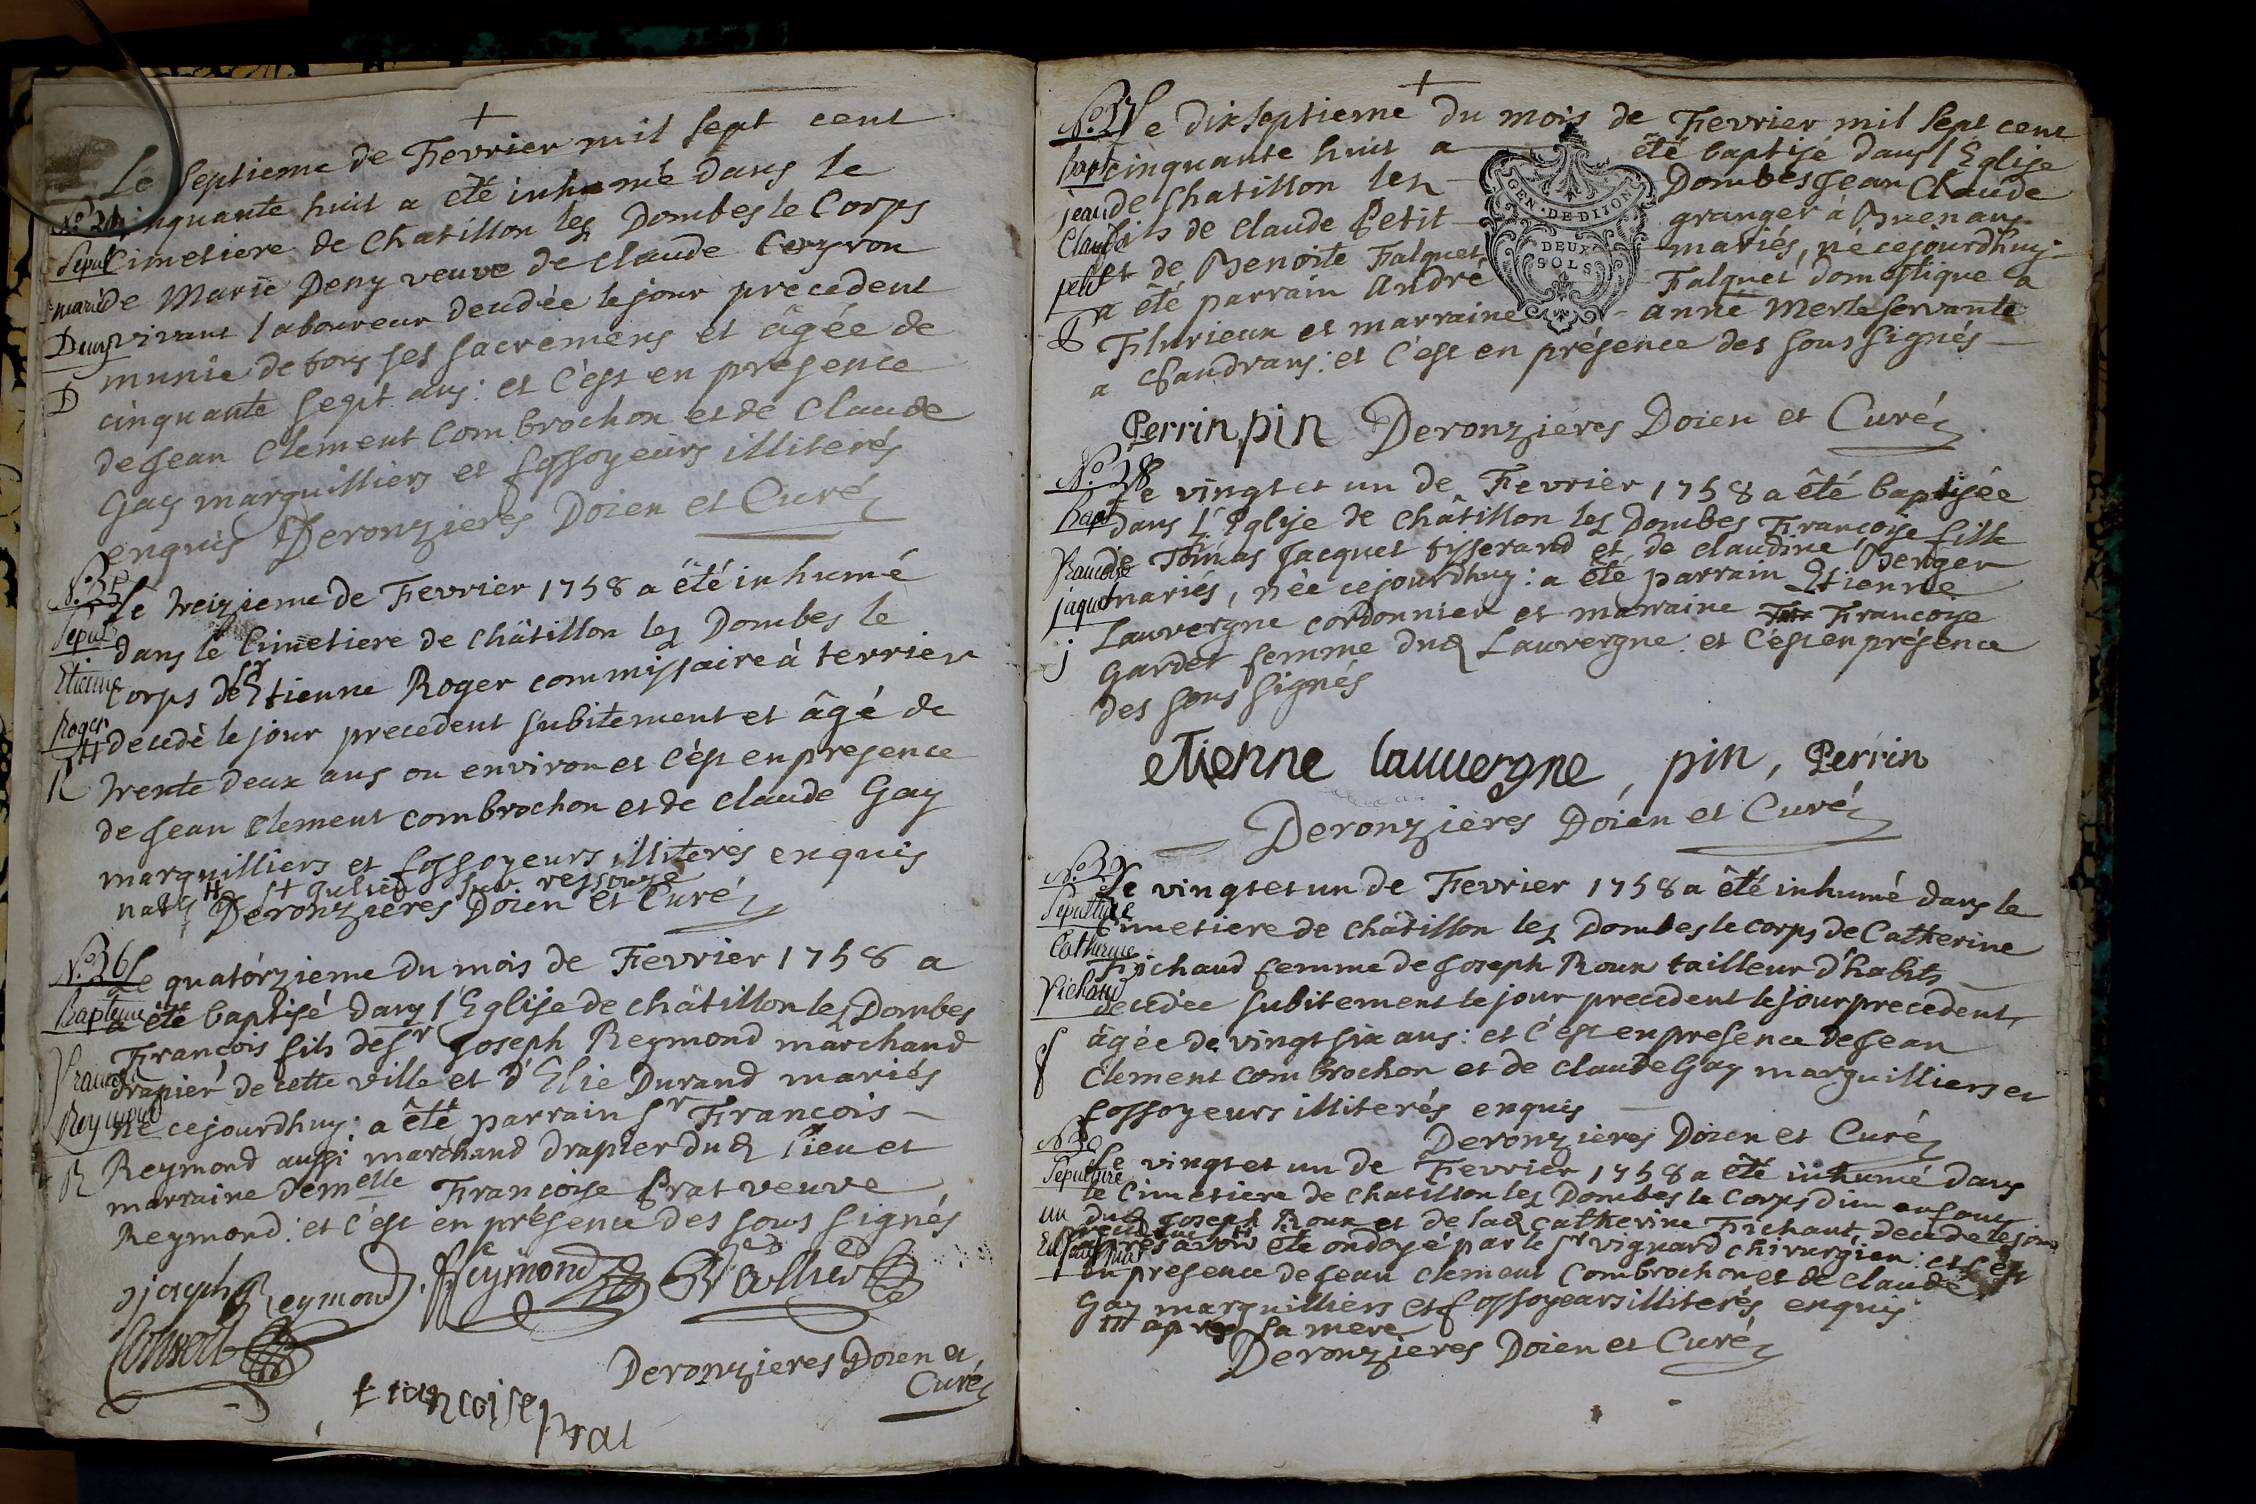 +
Le septieme de Fevrier mil sept cent
cinquante huit a été inhumé dans le
Cimetiere de Chatillon les Dombes le Corps
de Marie Deny veuve de Claude Ceyzron
vivant laboureur decedée le jour precedent
munie de tous ses sacremens et âgée de
cinquante sept ans : et c'est en presence
de Jean Clement Combrochon et de Claude
Gay marguilliers et fossoyeurs illiterés
enquis Deronzieres Doien et Curé
Sepul
marie
Deny
D
No. 35 Le treizieme de Fevrier 1758 a été inhumé
Sepul dans le Cimetiere de Châtillon les Dombes le
Etienne corps de Sr Etienne Roger commissaire à terrier
Roger decedé le jour precedent subitement et âgé de
R trente deux ans ou environ et c'est en presence
de Jean Clement Combrochon et de Claude Gay
marguilliers et fossoyeurs illiterés enquis
natif st Julien sur ressouze
Deronzieres Doien et Curé
No. 36 Le quatorzieme du mois de Fevrier 1758 a
Bapteme a été baptisé dans l'Eglise de châtillon les Dombes
François fils de Sr Joseph Reymond marchand
drapier de cette ville et d'Elie Durand mariés
Reymond né cejourdhuy : a été parrain Sr François
R Reymond aussi marchand drapier dud lieu et
marraine demelle Françoise Prat veuve
Reymond : et c'est en présence des sous signés
j joseph Reymond . Reymond Vallier
Convert
Deronzieres Doien et
Curé
francoise prat
+
No. 37 Le dixseptieme du mois de Fevrier mil sept cent
bapt cinquante huit a été baptisé dans l'Eglise
jean de Chatillon les Dombes Jean Claude
Claude fils de Claude Petit granger à Buenans
petit et de Benoite Falquet mariés, né cejourdhuy
a été parrain André Falquet domestique a
Flurieux et marraine anne Merle servante
a Sandrans : et c'est en présence des sous signés
GEN. DE DIJON
DEUX
SOLS
Perrin pin Deronzieres Doien et Curé
No. 38
Le vingt et un de Fevrier 1758 a été baptisée
bapt dans L'Eglise de Châtillon les Dombes Françoise fille
Francoise de Tomas Jacquet tisserand et de Claudine Berger
jaquet mariés, née cejourdhuy : a été parrain Etienne
Lauvergne cordonnier et marraine Francoise
j Gardet femme dud Lauvergne : et c'est en présence
des sous signés
etienne lauuergne, pin, Perrin
Deronzieres Doien et Curé
Le vingt et un de Fevrier 1758 a été inhumé dans le
Sepulture Cimetiere de châtillon les Dombes le corps de Catherine
Catherine Fichaud femme de Joseph Roux tailleur d'habits
decedée subitement le jour precedent le jour precedent
âgée de vingt six ans : et c'est en presence de Jean
Clement Combrochon et de Claude Gay marguilliers et
fossoyeurs illiterés enquis
Deronzieres Doien et Curé
Le vingt et un de Fevrier 1758 a été inhumé dans
Sepulture le Cimetiere de chatillon les Dombes le Corps d'un enfant
un dud Joseph Roux et de lad Catherine Fichaut, decedé le jour
precedent
apres avoir été ondoyé par le Sr vignard chirurgien : et c'est
en presence de Jean Clement Combrochon et de Claude
Gay marguilliers et fossoyeurs illiterés enquis
apres sa mere
Deronzieres Doien et Curé